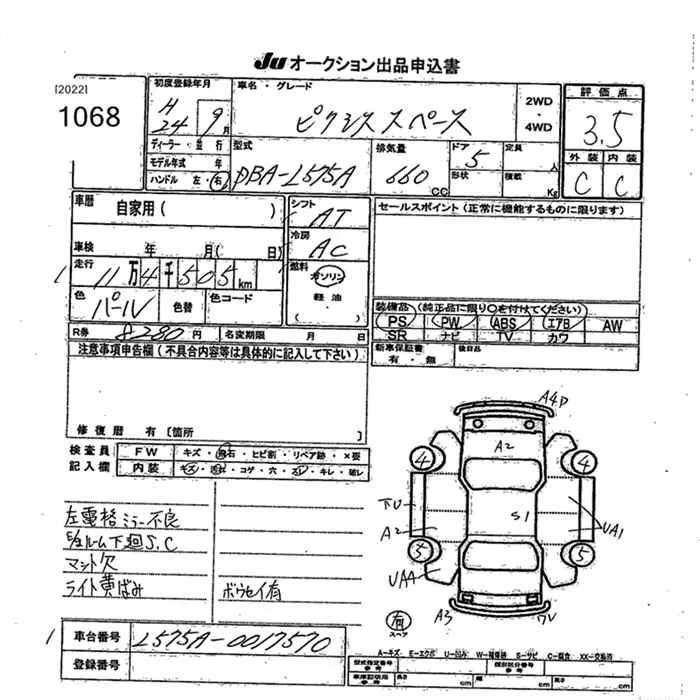 Ju オークション出品申込書
[2022]
1068
初度登録年月
H
24
9月
車名・グレード
ピクシススペース
2WD
・
4WD
評価点
3.5
ディーラー・並行
モデル年式 年
ハンドル 左・右
型式
DBA-L575A
排気量
660 CC
ドア
5
形状
定員
人
積載
Kg
外装 内装
C C
車歴
自家用( )
車検 年 月( 日)
走行
11万4千505km
色
パール
色替
色コード
シフト
AT
冷房
AC
燃料
ガソリン
・
軽油
・
( )
セールスポイント(正常に機能するものに限ります)
装備品(純正品に限り○を付けてください)
PS PW ABS エアB AW
SR ナビ TV カワ
新車保証書
有・無
後日品
R券 8280円
名変期限 月 日
注意事項申告欄(不具合内容等は具体的に記入して下さい)
修復歴 有〔箇所
検査員
記入欄
FW キズ・飛石・ヒビ割・リペア跡・×要
内装 キズ・汚れ・コゲ・穴・スレ・キレ・破レ
左電格ミラー不良
ルーム下廻S.C
マット欠
ライト黄ばみ
ボウセイ有
A4P
A2
4
4
下U
A2
S1
UA1
5
5
UA4
A3
有
スペア
1 車台番号 L575A-0017570
登録番号
A-キズ E-エクボ U-凹み W-補修跡 S-サビ C-腐食 XX-交換済
型式指定番号
参考
類別区分番号
参考
車庫証明用
参考
長さ cm
幅 cm
高さ cm